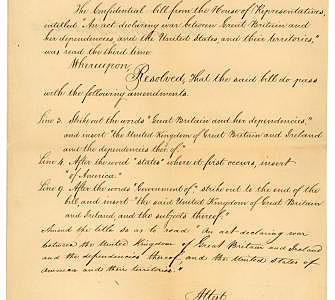 The Confidential bill from the House of Representatives,
entitled "An act declaring war between Great Britain and
her dependencies, and the United States, and their territories,"
was read the third time.
Whereupon
Resolved, That the said bill do pass
with the following amendments.
Line 3. Strike out the words "Great Britain and her dependencies,"
and insert "the United Kingdom of Great Britain and Ireland
and the dependencies thereof."
Line 4. After the word "states" where it first occurs, insert
"of America."
Line 9. After the words "Government of," strike out to the end of the
bill, and insert "the said United Kingdom of Great Britain
and Ireland, and the subjects thereof."
Amend the title so as to read: "An act declaring war
between the United Kingdom of Great Britain and Ireland
and the dependencies thereof, and the United States of
America and their territories."
Attest,